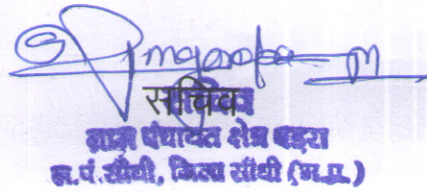 सचिव
ग्राम पंचायत क्षेत्र पड़रा
ज.पं.सीधी, जिला सीधी (म.प्र.)